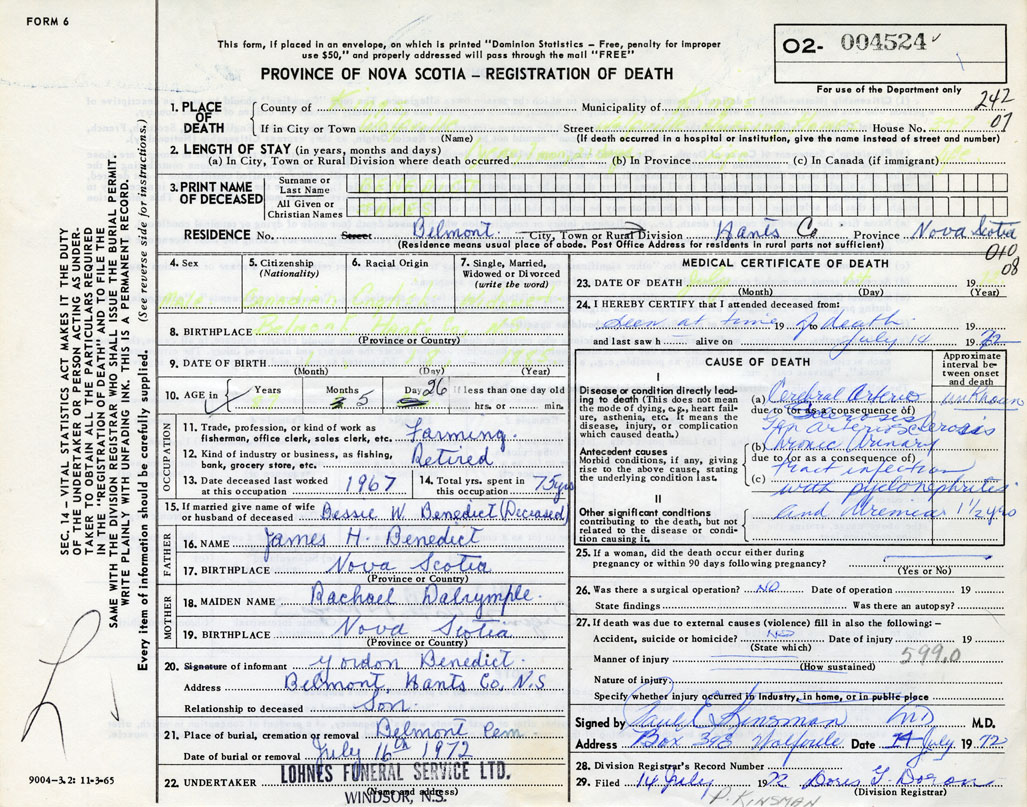 FORM 6
This form, if placed in an envelope, on which is printed "Dominion Statistics – Free, penalty for improper
use $50," and properly addressed will pass through the mail "FREE"
PROVINCE OF NOVA SCOTIA – REGISTRATION OF DEATH
O2- 004524
For use of the Department only
242
07
SEC. 14 – VITAL STATISTICS ACT MAKES IT THE DUTY
OF THE UNDERTAKER OR PERSON ACTING AS UNDER-
TAKER TO OBTAIN ALL THE PARTICULARS REQUIRED
IN THE "REGISTRATION OF DEATH" AND TO FILE THE
SAME WITH THE DIVISION REGISTRAR WHO SHALL ISSUE THE BURIAL PERMIT.
WRITE PLAINLY WITH UNFADING INK. THIS IS A PERMANENT RECORD.
Every item of information should be carefully supplied. (See reverse side for instructions.)
1. PLACE OF DEATH
County of Kings Municipality of Kings
If in City or Town Wolfville Street Wolfville Nursing Homes House No.
(Name) (If death occurred in a hospital or institution, give the name instead of street and number)
2. LENGTH OF STAY (in years, months and days)
(a) In City, Town or Rural Division where death occurred (b) In Province Life (c) In Canada (if immigrant) life
3. PRINT NAME OF DECEASED
Surname or Last Name BENEDICT
All Given or Christian Names JAMES
RESIDENCE No. Street Belmont City, Town or Rural Division Hants Co Province Nova Scotia
(Residence means usual place of abode. Post Office Address for residents in rural parts not sufficient)
010
08
4. Sex Male
5. Citizenship (Nationality) Canadian
6. Racial Origin
7. Single, Married, Widowed or Divorced (write the word) Widowed
8. BIRTHPLACE Belmont Hants Co. N.S.
(Province or Country)
9. DATE OF BIRTH 1 18 1885
(Month) (Day) (Year)
10. AGE in Years 87 Months 5 Days 26 If less than one day old
hrs. or min.
OCCUPATION
11. Trade, profession, or kind of work as
fisherman, office clerk, sales clerk, etc. Farming.
12. Kind of industry or business, as fishing,
bank, grocery store, etc. Retired
13. Date deceased last worked
at this occupation 1967
14. Total yrs. spent in
this occupation 75 yrs
15. If married give name of wife
or husband of deceased Bessie W. Benedict (Deceased)
FATHER
16. NAME James H. Benedict
17. BIRTHPLACE Nova Scotia
(Province or Country)
MOTHER
18. MAIDEN NAME Rachael Dalrymple.
19. BIRTHPLACE Nova Scotia
(Province or Country)
20. Signature of informant Gordon Benedict.
Address Belmont, Hants Co, N.S
Relationship to deceased Son.
21. Place of burial, cremation or removal Belmont Cem.
Date of burial or removal July 16th 1972
22. UNDERTAKER LOHNES FUNERAL SERVICE LTD.
(Name and address)
WINDSOR, N.S.
9004-3.2: 11-3-65
MEDICAL CERTIFICATE OF DEATH
23. DATE OF DEATH July 14 19 72
(Month) (Day) (Year)
24. I HEREBY CERTIFY that I attended deceased from:
seen at time 19 to of death 19
and last saw h alive on July 14 19 72
CAUSE OF DEATH
Approximate interval between onset and death
I
Disease or condition directly lead-
ing to death (This does not mean
the mode of dying, e.g., heart fail-
ure, asthenia, etc. It means the
disease, injury, or complication
which caused death.)
(a) Cerebral Arterio unknown
due to (or as a consequence of)
Arteriosclerosis
Antecedent causes
Morbid conditions, if any, giving
rise to the above cause, stating
the underlying condition last.
(b) Chronic Urinary
due to (or as a consequence of)
tract infection
(c) with pyelonephritis
II
Other significant conditions
contributing to the death, but not
related to the disease or condi-
tion causing it.
and Uremia 1 1/2 yrs
25. If a woman, did the death occur either during
pregnancy or within 90 days following pregnancy?
(Yes or No)
26. Was there a surgical operation? NO Date of operation 19
State findings Was there an autopsy?
27. If death was due to external causes (violence) fill in also the following: –
Accident, suicide or homicide? NO Date of injury 19
(State which)
599.0
Manner of injury
(How sustained)
Nature of injury
Specify whether injury occurred in Industry, in home, or in public place
Signed by Paul E Kinsman MD M.D.
Address Box 398 Wolfville Date 14 July 19 72
28. Division Registrar's Record Number
29. Filed 14 July 1972 Doris G.
(Division Registrar)
P. KINSMAN